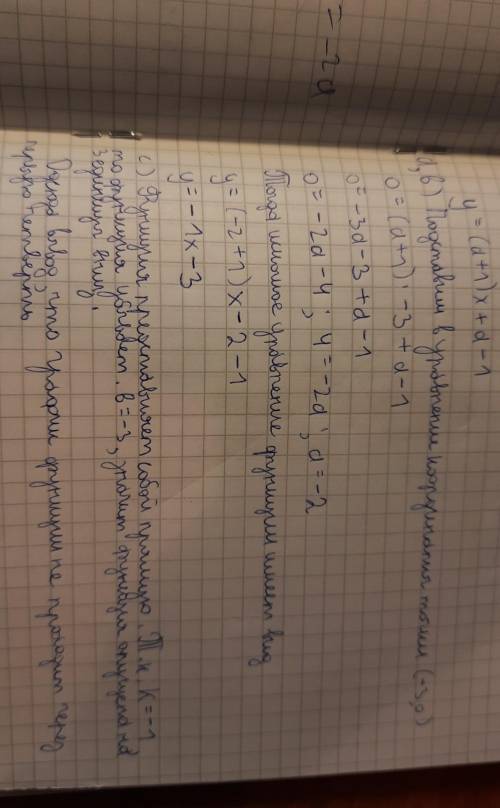 = -2d
y = (d+1)x + d - 1
a, b) Подставим в уравнение координаты точки (-3,0)
0 = (d+1)·-3 + d - 1
0 = -3d - 3 + d - 1
0 = -2d - 4; 4 = -2d; d = -2
Тогда искомое уравнение функции имеет вид
y = (-2+1)x - 2 - 1
y = -1x - 3
c) Функция представляет собой прямую. Т.к. K = -1
то функция убывает. b = -3, значит функция опущена на
3 единицы вниз.
Отсюда вывод, что график функции не проходит через
первую четверть